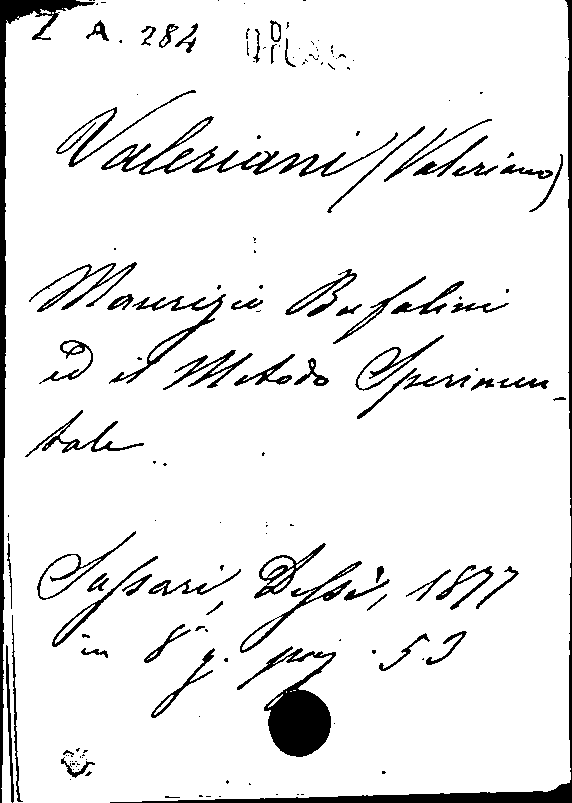 Z A. 284
Valeriani (Valeriano)
Maurizio Bufalini
ed il Metodo Sperimen-
tale
Sassari, Dessì, 1877
in 8° g. pag. 53